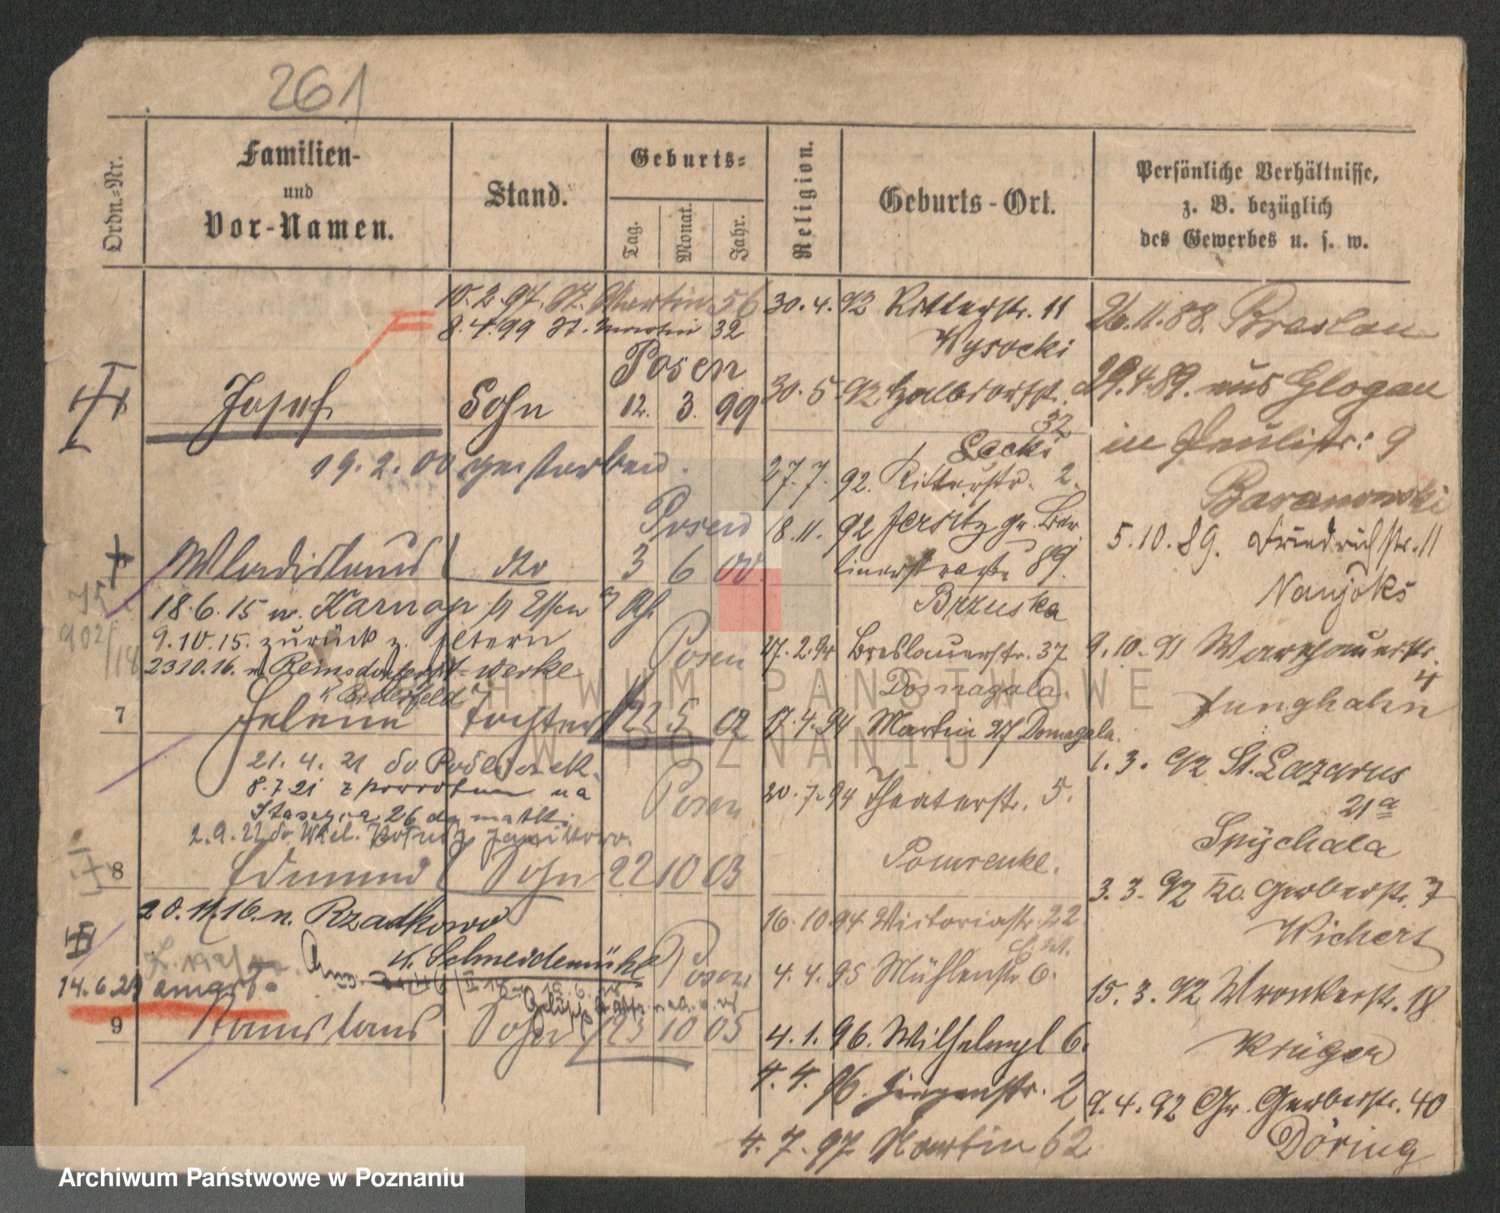 261
Ordn.-Nr.
Familien-
und
Vor-Namen.
Stand.
Geburts-
Tag.
Monat.
Jahr.
Religion.
Geburts-Ort.
Persönliche Verhältnisse,
z. B. bezüglich
des Gewerbes u. s. w.
10.2.97. St. Martin 56
8.4.99 St. Martin 32
Posen
Josef Sohn 12. 3. 99
19.2.00 gestorben.
Posen
Wladislaus dto 3 6 00
18.6.15 n. Karnap b/ Essen
9.10.15. zurück z. Eltern
23.10.16. n. werke
Posen
7 Helene Tochter 22 5 02
21.4.21 do
8.7.21 z powrotem na
26 do matki
2.9.22 do
Posen
8 Edmund Sohn 22 10 03
20.11.16. n. Rzadkowo
K. Schneidemühl
Posen
14.6.29 zmarł
9 Stanislaus Sohn 23 10 05
30.4.92 Ritterstr. 11
Wysocki
30.5.92 Halbdorfstr.
32
Lecki
27.7.92. Ritterstr. 2.
18.11.92 Jersitz gr. Ber
linerstrasse 89.
Brzuska
27.2.94 Breslauerstr. 37
Domagala.
17.4.94 Martin 27 Domagala.
20.7.94 Theaterstr. 5.
Pomrenke.
16.10.94 Victoriastr. 22
4.4.95 Mühlenstr 6.
4.1.96. Wilhelmpl 6.
4.4.96. 2
4.7.97 Martin 62
26.11.88. Breslau
29.4.89. aus Glogau
in Paulistr: 9
Baranowski
5.10.89. Friedrichstr. 11
Naujoks
9.10.91 Warschauerstr.
4
Junghahn
1.3.92 St. Lazarus
21a
Spÿchala
3.3.92 Kl. Gerberstr. 7
Wichert
15.3.92 Wronkerstr. 18
Krüger
9.4.92 Gr. Gerberstr. 40
Döring
ARCHIWUM PAŃSTWOWE
W POZNANIU
Archiwum Państwowe w Poznaniu